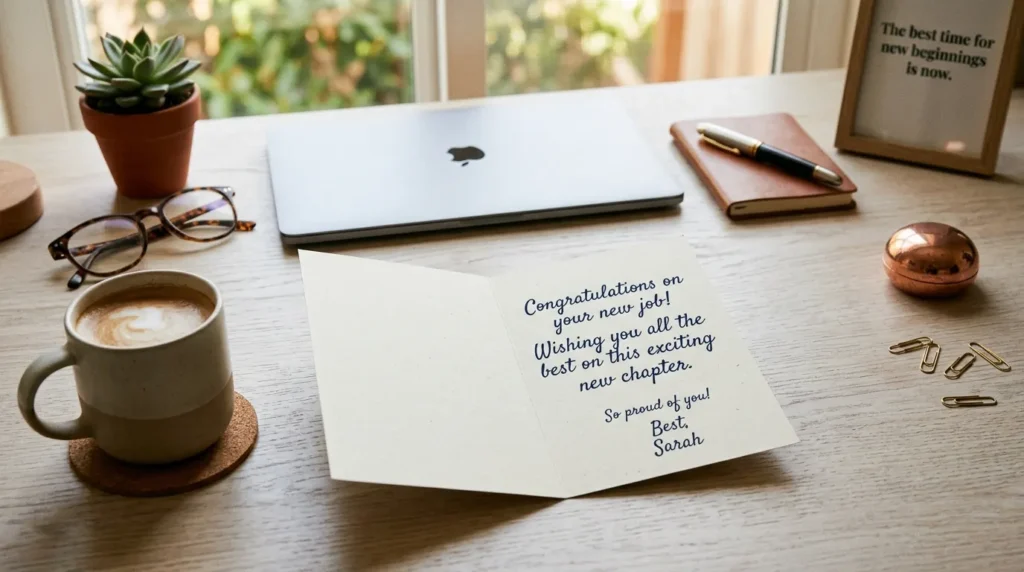 The best time for
new beginnings
is now.
Congratulations on
your new job!
Wishing you all the
best on this exciting
new chapter.
So proud of you!
Best,
Sarah